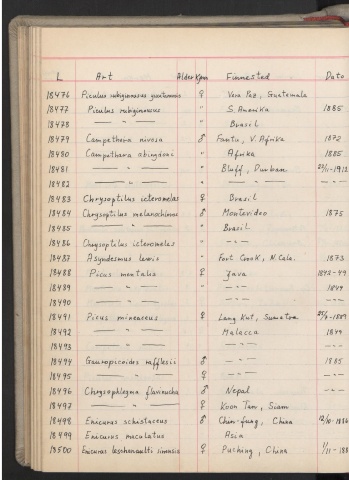 L Art Alder Kjønn Finnested Dato
18476 Piculus rubiginosus yucatanensis ♀ Vera Paz, Guatemala
18477 Piculus rubiginosus " S. Amerika 1885
18478 — " — " Brasil
18479 Campethera nivosa ♂ Fantu, V. Afrika 1872
18480 Campethera abingoni " Afrika 1885
18481 — " — " Bluff, Durban
18482 — " — " — " —
18483 Chrysoptilus icteromelas ♀ Brasil
18484 Chrysoptilus melanochloros ♂ Montevideo 1875
18485 — " — " Brasil
18486 Chrysoptilus icteromelas " — " —
18487 Asyndesmus lewis " Fort Crook, N. Cala. 1873
18488 Picus mentalis ♀ Java
18489 — " — — " — 1849
18490 — " — — " —
18491 Picus mineaceus ♀ Lang Kut, Sumatra
18492 — " — Malacca 1849
18493 — " — — " —
18494 Gauropicoides rafflesii ♂ — " — 1885
18495 — " — ♀ — " —
18496 Chrysophlegma flavinucha ♂ Nepal
18497 — " — ♀ Koon Tan, Siam
18498 Enicurus schistaceus ♂ China
18499 Enicurus maculatus Asia
18500 Enicurus leschenaulti sinensis ♀ Puching, China